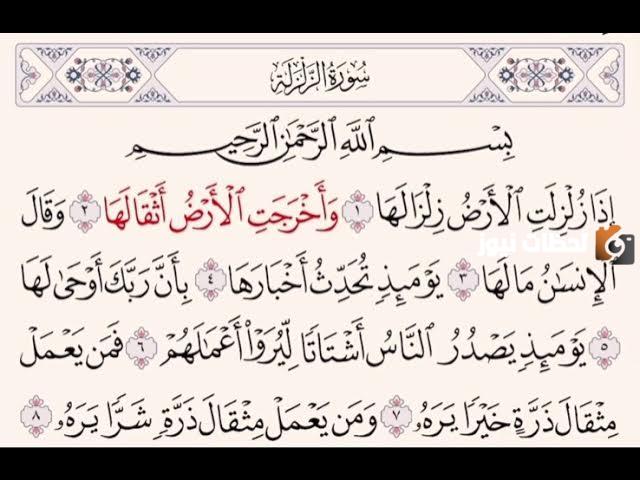 سُورَةُ الزَّلْزَلَةِ
بِسْمِ اللَّهِ الرَّحْمَٰنِ الرَّحِيمِ
إِذَا زُلْزِلَتِ الْأَرْضُ زِلْزَالَهَا ١ وَأَخْرَجَتِ الْأَرْضُ أَثْقَالَهَا ٢ وَقَالَ
لحظات نيوز
الْإِنسَانُ مَا لَهَا ٣ يَوْمَئِذٍ تُحَدِّثُ أَخْبَارَهَا ٤ بِأَنَّ رَبَّكَ أَوْحَىٰ لَهَا
٥ يَوْمَئِذٍ يَصْدُرُ النَّاسُ أَشْتَاتًا لِّيُرَوْا أَعْمَالَهُمْ ٦ فَمَن يَعْمَلْ
مِثْقَالَ ذَرَّةٍ خَيْرًا يَرَهُ ٧ وَمَن يَعْمَلْ مِثْقَالَ ذَرَّةٍ شَرًّا يَرَهُ ٨